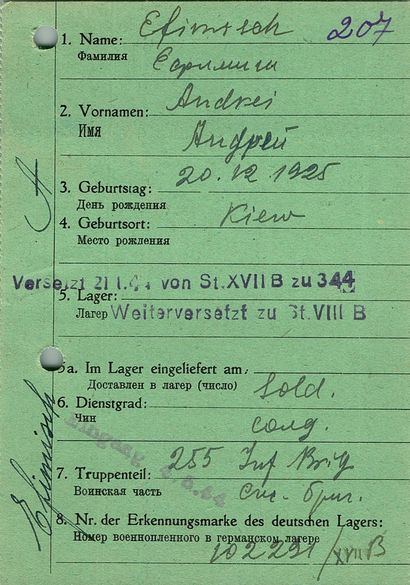 207
1. Name: Efimisch
Фамилия
2. Vornamen: Andrei
Имя Андрей
3. Geburtstag: 20.12.1925
День рождения
4. Geburtsort: Kiew
Место рождения
Versetzt 21 1.44 von St. XVII B zu 344
5. Lager:
Лагер Weiterversetzt zu St. VIII B
5a. Im Lager eingeliefert am:
Доставлен в лагер (число)
6. Dienstgrad: Sold.
Чин солд.
7. Truppenteil: 255 Inf Brig
Воинская часть
8. Nr. der Erkennungsmarke des deutschen Lagers:
Номер военнопленного в германском лагере
102291 / XVII B
Efimisch